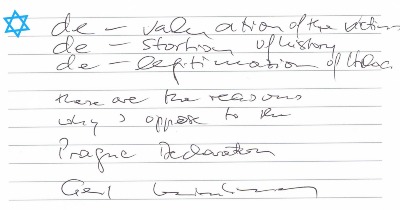 de - valuation of the victims
de - stortion of history
de - legitimazion of
these are the reasons
why I oppose to the
Prague Declaration